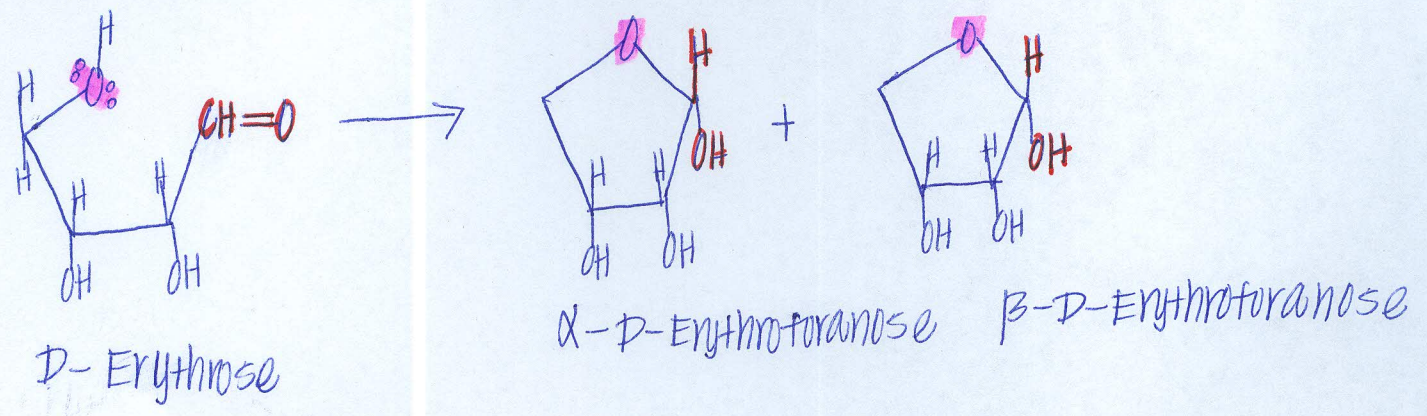 H
H
O
CH=O
H
H
H
OH
OH
D-Erythrose
O
H
OH
H
H
OH
OH
α-D-Erythrofuranose
+
O
H
OH
H
H
OH
OH
β-D-Erythrofuranose